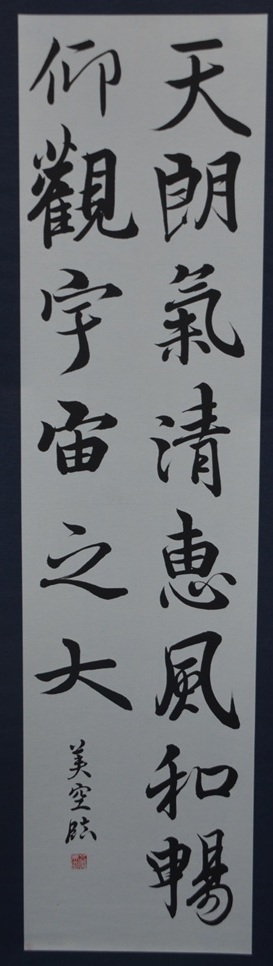 天朗氣清恵風和暢
仰觀宇宙之大
美空臨